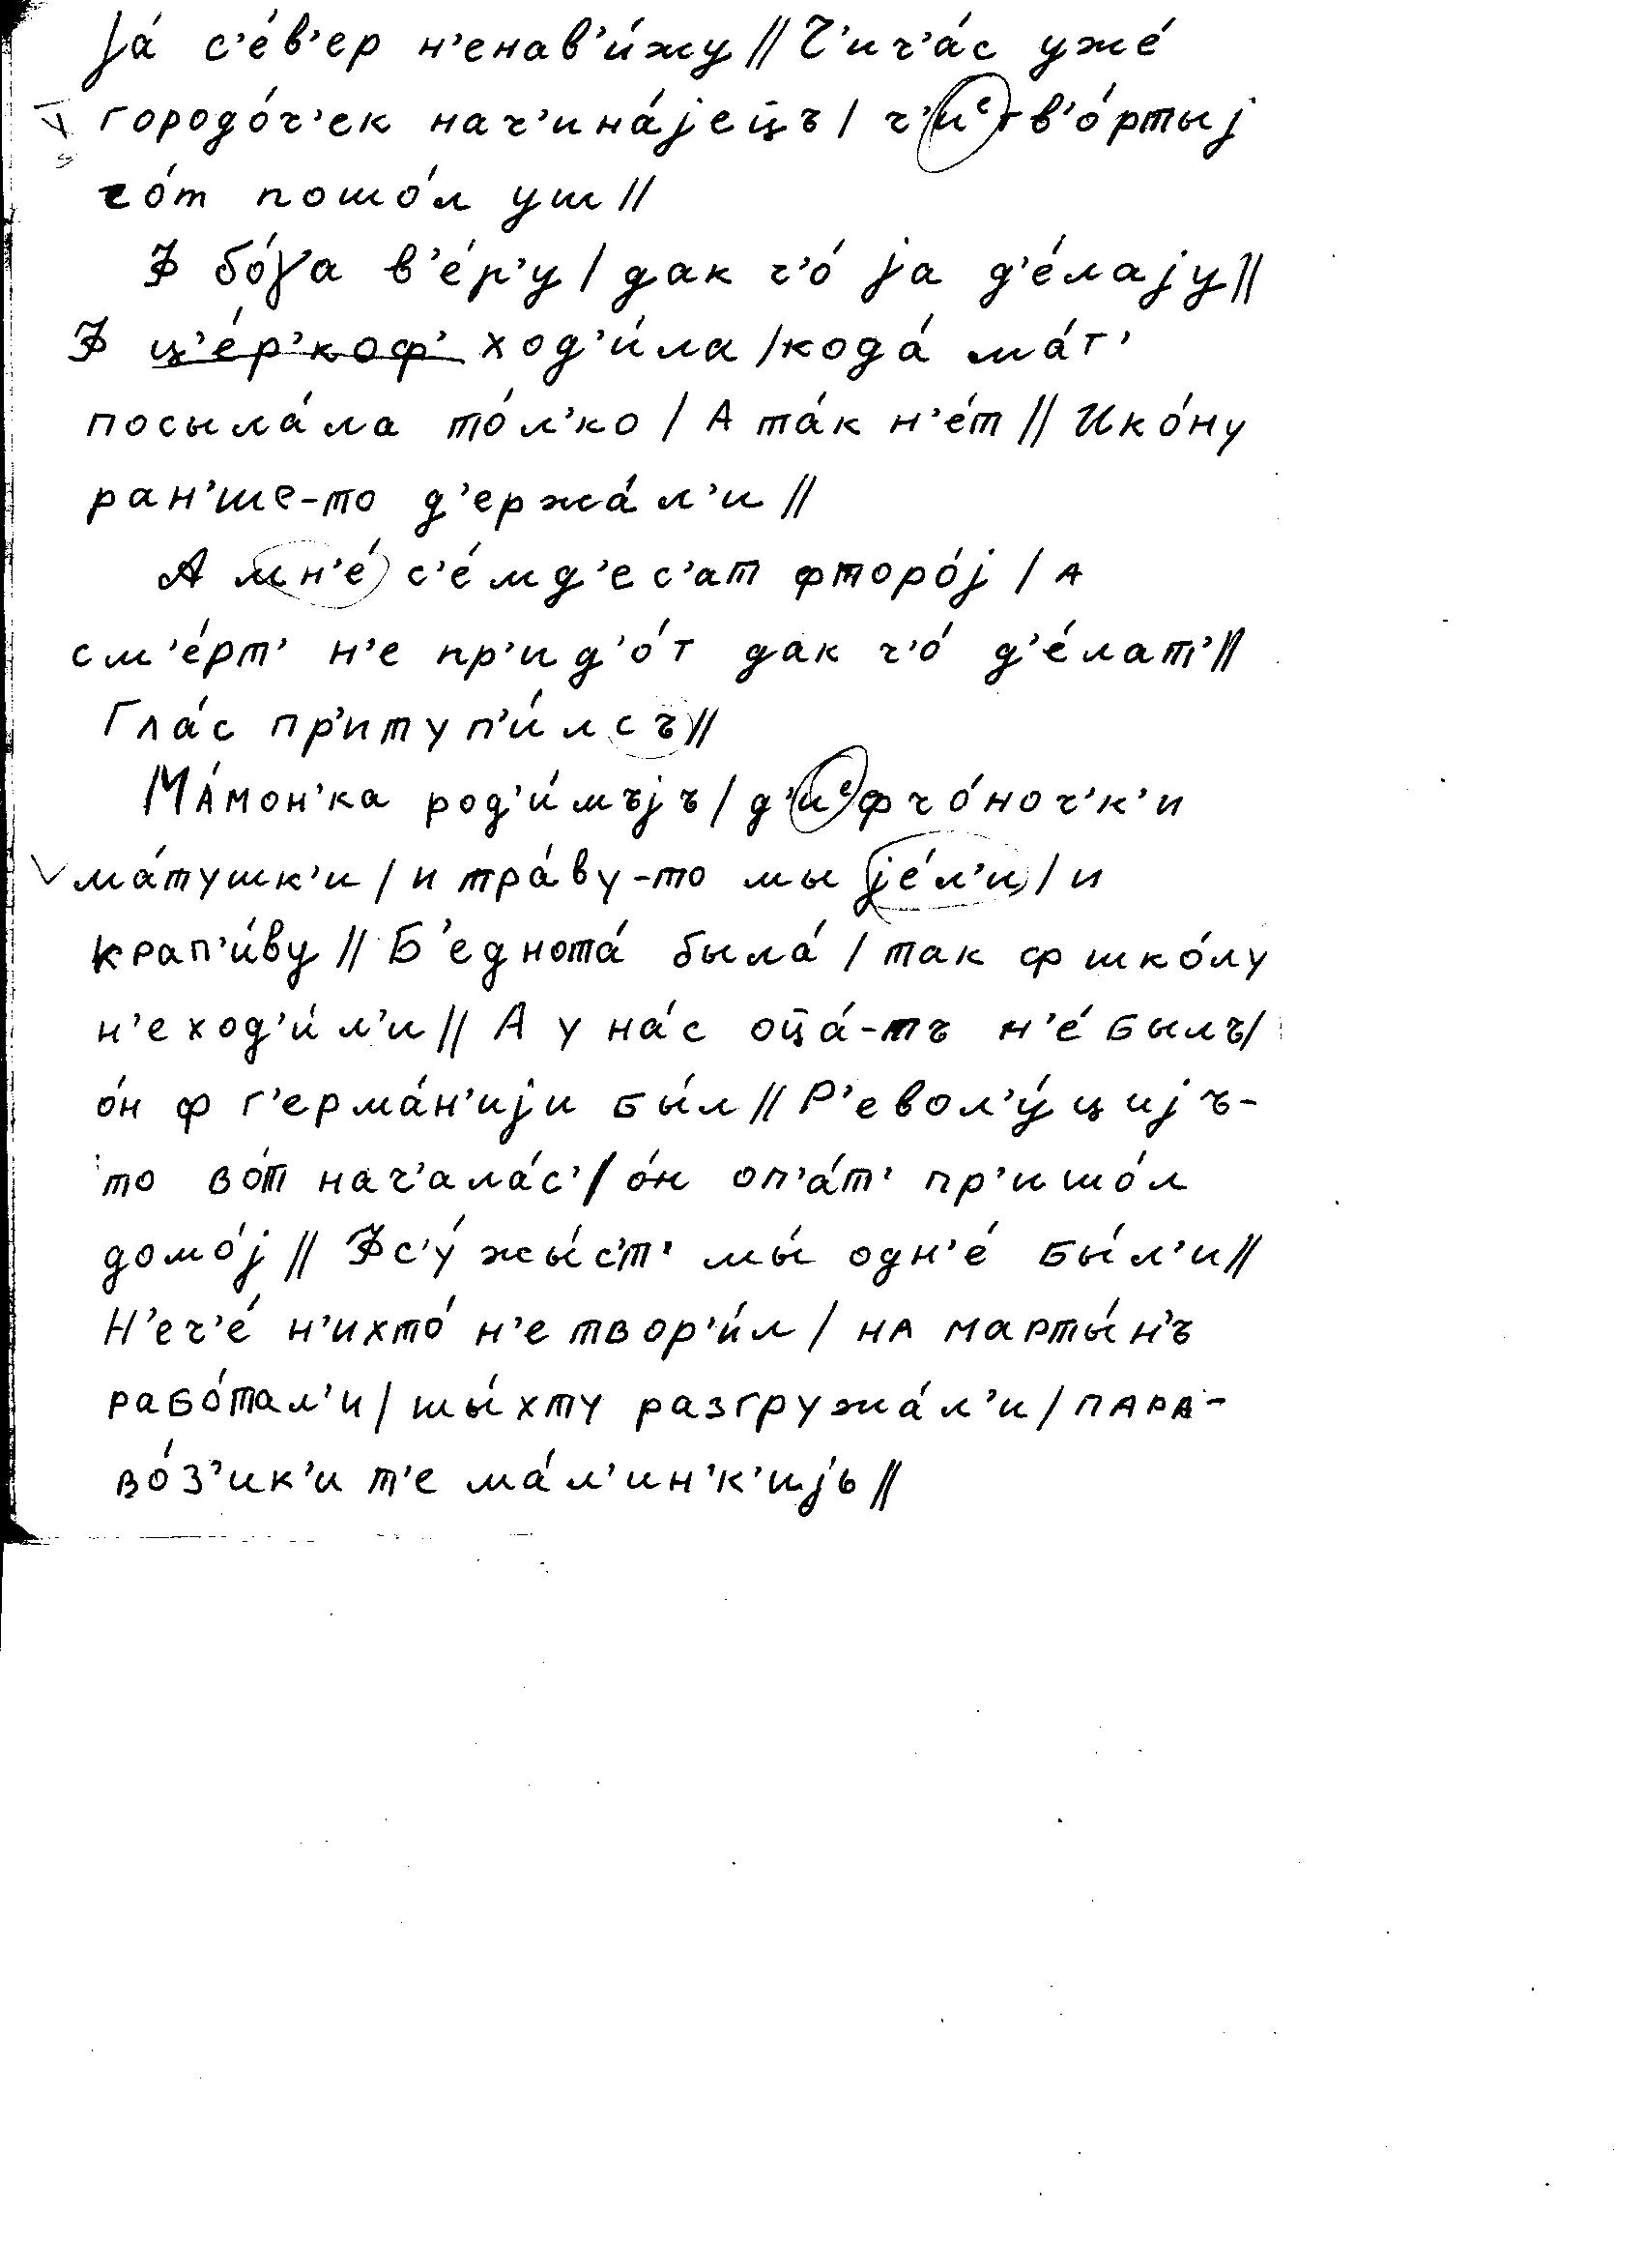 jа́ с'е́в'ер н'енав'и́жу // Ч'ич'а́с уже́
городо́ч'ек нач'ина́jец̄ъ / ч'иᵉтв'о́ртыj
го́т пошо́л уш //
Ф бо́γа в'е́р'у / дак ч'о́ jа д'е́лаjу //
Ф ц'е́р'коф' ход'и́ла / кода́ ма́т'
посыла́ла то́л'ко / А та́к н'е́т // Ико́ну
ран'ше-то д'ержа́л'и //
А мн'е́ с'е́мд'ес'ат фторо́j / а
см'е́рт' н'е пр'ид'о́т дак ч'о́ д'е́лат' //
Гла́с пр'итуп'и́лсъ //
Ма́мон'ка род'и́мъjъ / д'иᵉфчо́ноч'к'и
ма́тушк'и / и тра́ву-то мы jе́л'и / и
крап'и́ву // Б'еднота́ была́ / так ф шко́лу
н'е ход'и́л'и // А у на́с оц̄а́-тъ н'е́ былъ /
о́н ф г'ерма́н'иjи бы́л // Р'евол'у́циjъ-
то во́т нач'ала́с' / о́н оп'а́т' пр'ишо́л
домо́j // Фс'у́ жы́с'т' мы́ одн'е́ бы́л'и //
Н'еч'е́ н'ихто́ н'е твор'и́л / на марты́н'ъ
рабо́тал'и / шы́хту разгружа́л'и / пара-
во́з'ик'и т'е ма́л'ин'к'иjь //